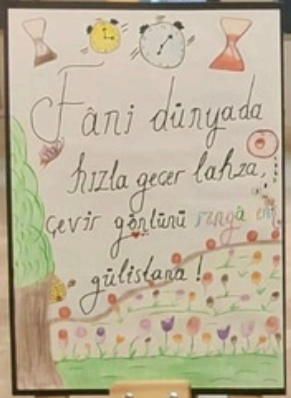 Fâni dünyada
hızla geçer lahza,
çevir gönlünü
gülistana!